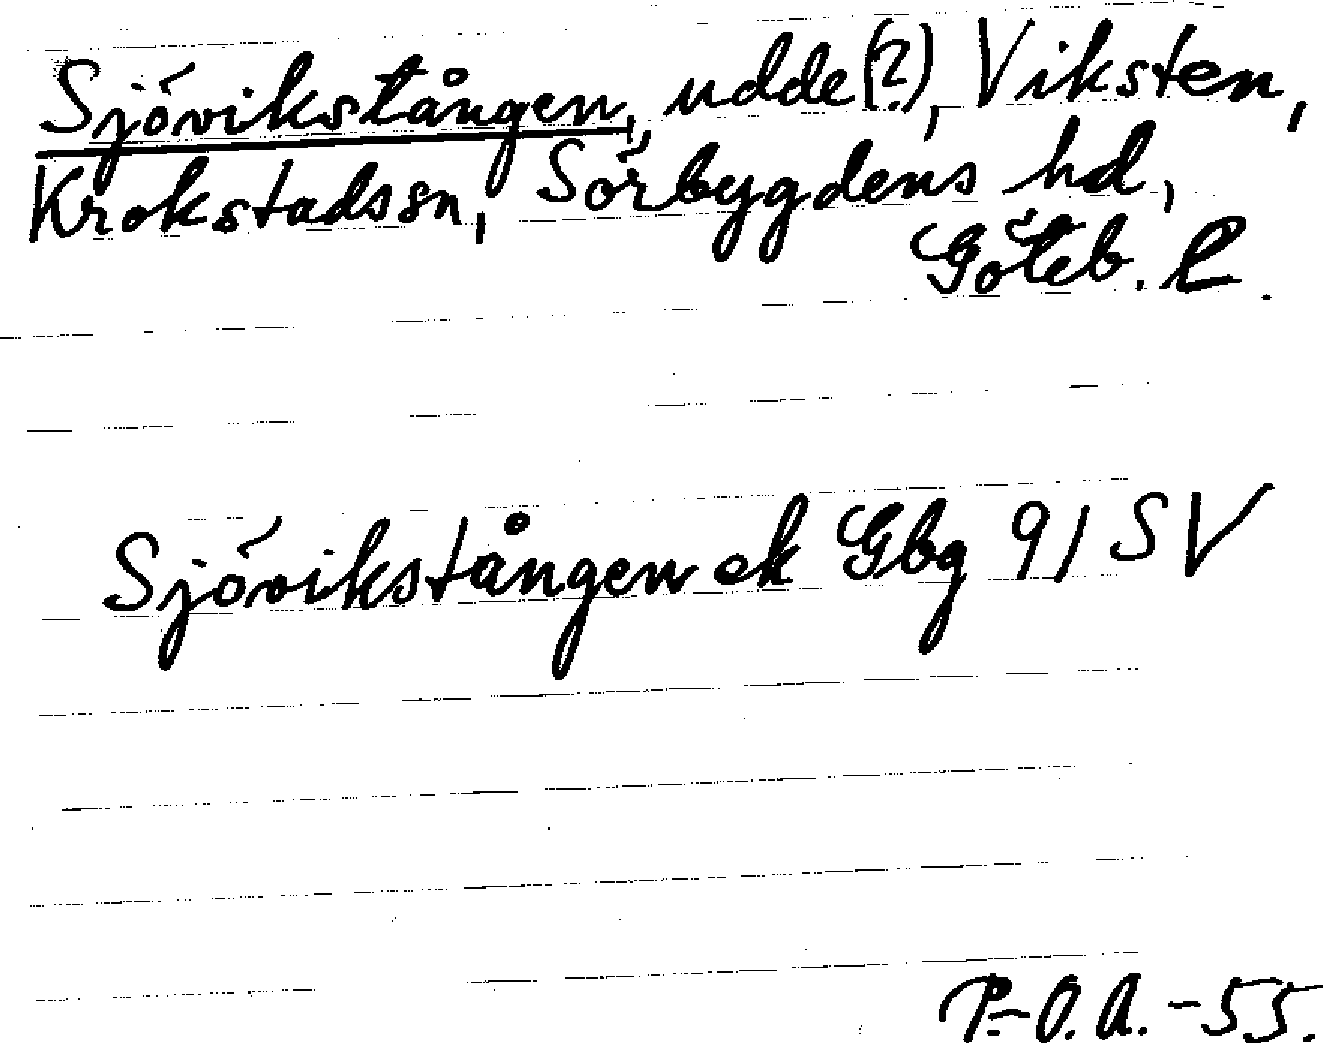 Sjövikstången, udde(?), Viksten,
Krokstads sn, Sörbygdens hd,
Göteb. L.
Sjövikstången ek Gbg 91 SV
P.-O. A. -55.